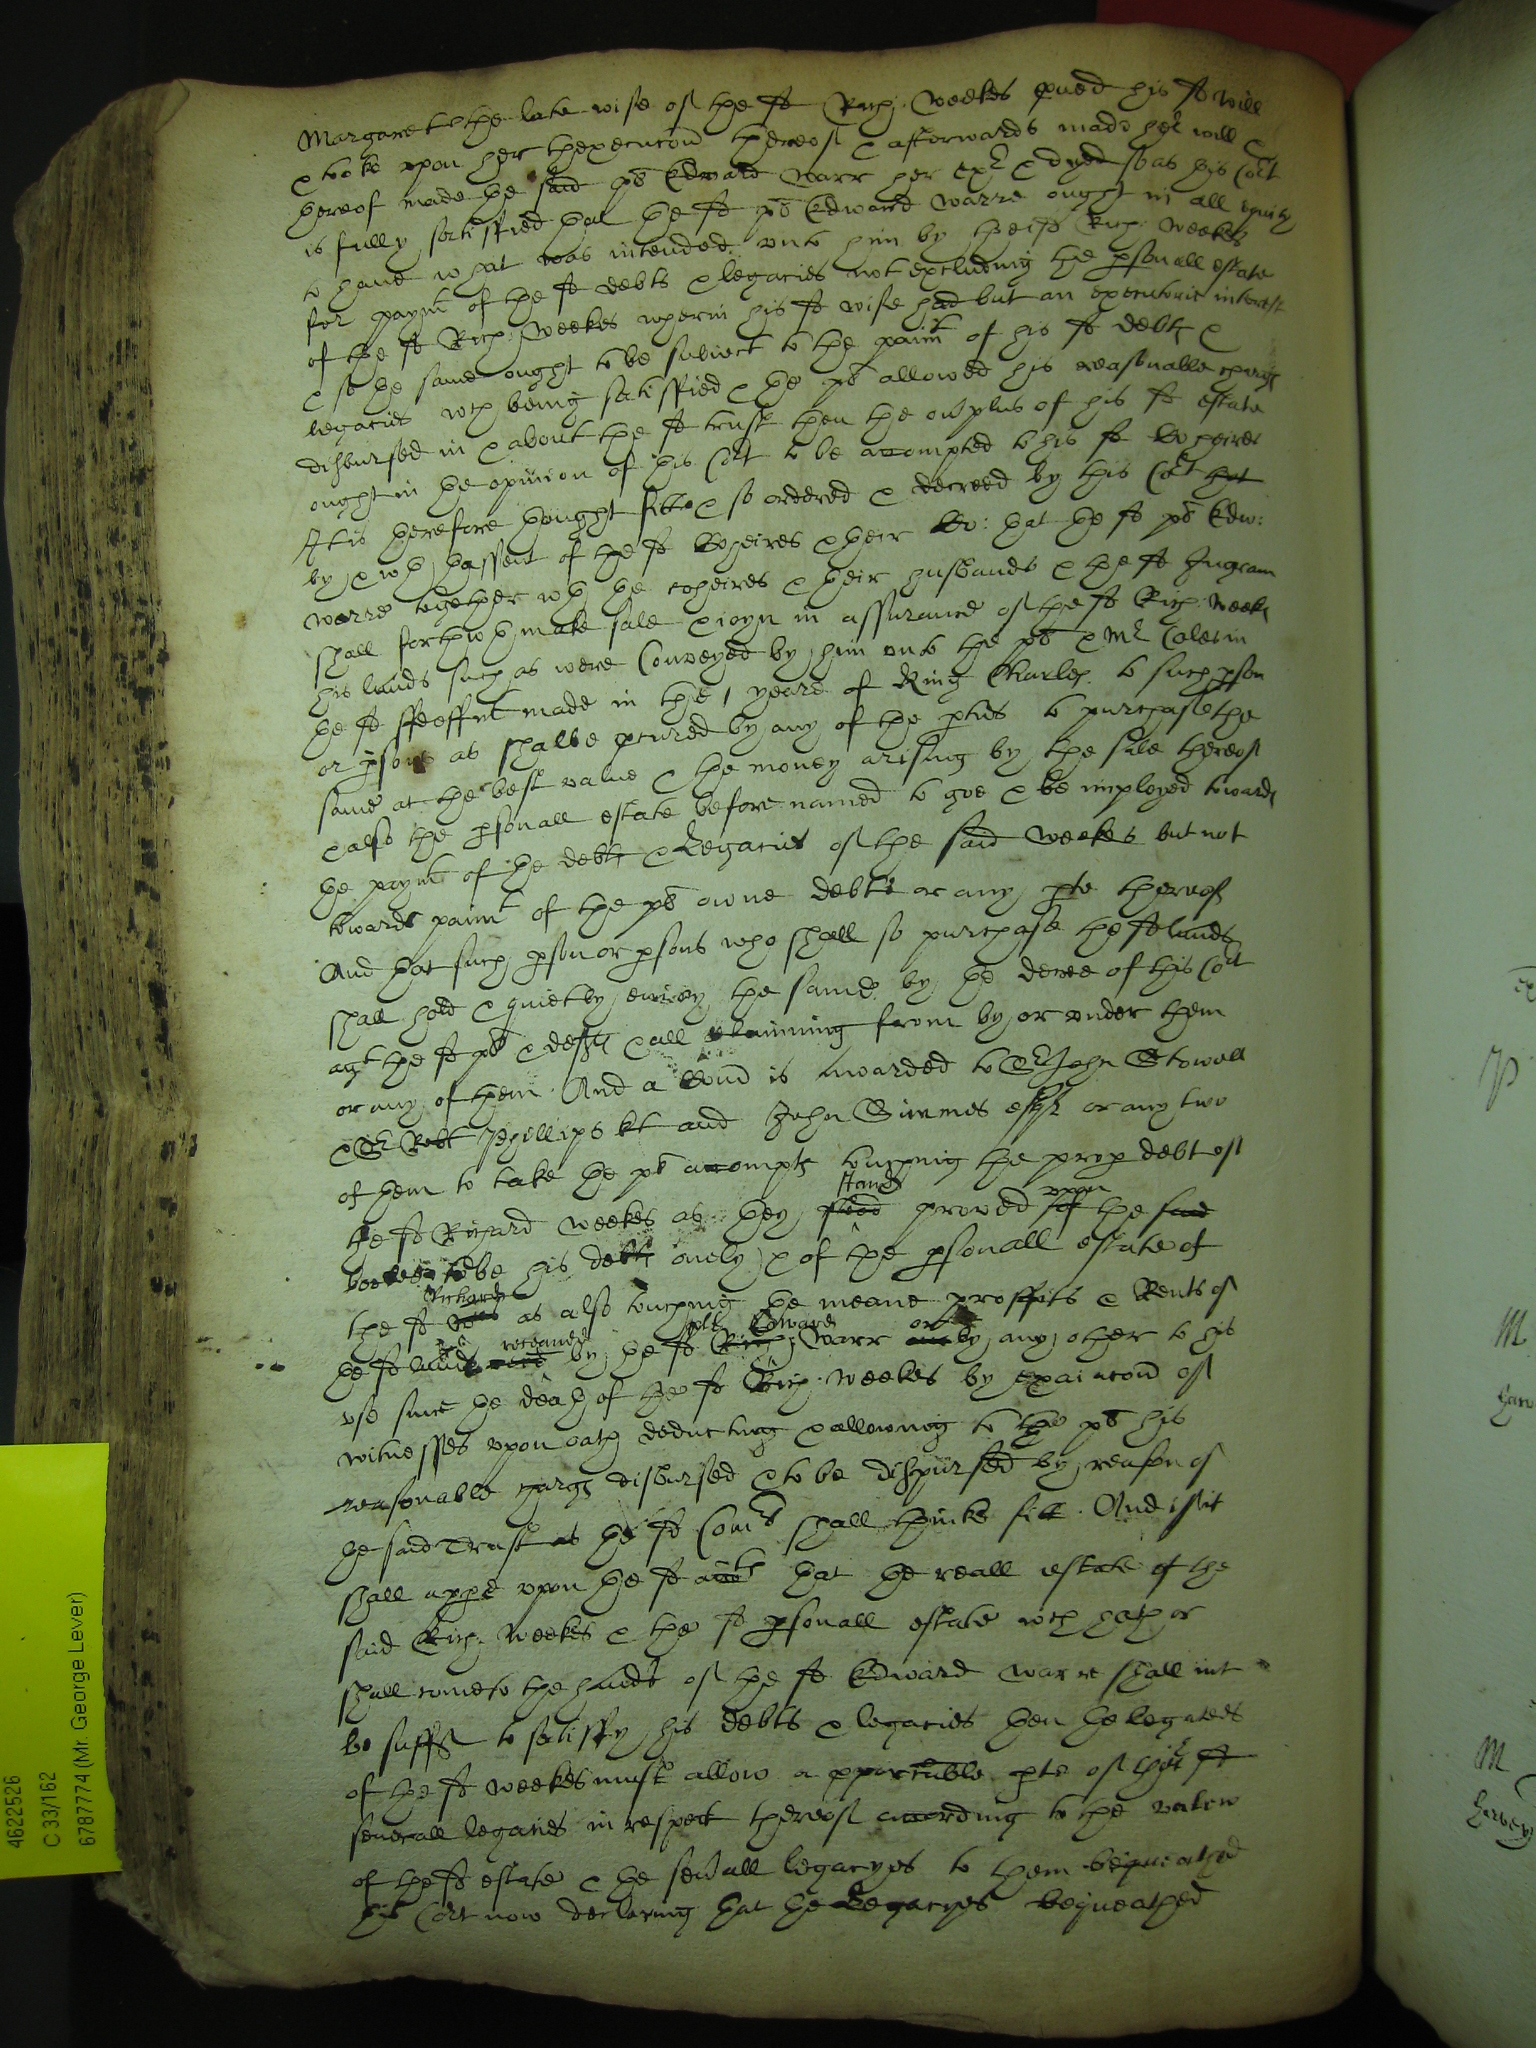 Margarett the late wife of the sd Rich: Weekes pued his sd will
& tooke vpon her thexecucon thereof & afterwards made her will &
thereof made the said pt Edward Warr her exr & dyed so as this Cort
is fully satisffied that the sd pt Edward Warre ought in all equity
to haue what was intended vnto him by the sd Rich: Weekes
for paymt of the sd debts & legacies not excluding the psonall estate
of the sd Rich: Weekes wherin his sd wife had but an executorie interest
& so the same ought to be subiect to the paimt of his sd debts &
legacies wch being satisffied & the pt allowed his reasonable charges
disbursed in & about the sd trust then the ouerplus of his sd estate
ought in the opinion of this Cort to be accompted to his sd Coheires
It is therefore thought fitt & so ordered & decreed by this Cort that
by & wth thassent of the sd Coheires & their Co: that the sd pt Edw:
Warre together wth the coheires & their husbands & the sd Ingram
shall forthwth make sale & ioyn in assurance of the sd Rich: Weekes
his lands such as were Conveyed by him vnto the pt & Mr Coles in
the sd ffeoffmt made in the 1 yeare of King Charles to such pson
or psons as shalbe pcured by any of the pties to purchase the
same at the best value & the money arising by the sale thereof
& also the psonall estate before named to goe & be imployed towards
the paymt of the debts & Legacies of the said Weekes but not
towards paimt of the pts owne debts or any pte thereof
And that such pson or psons who shall so purchase the sd lands
shall hold & quietly enioy the same by the decree of this Cort
agt the sd pt & defts & all clayming from by or vnder them
or any of them And a Com is awarded to Sr John Stowell
& Sr Robt Phillips kt and John Simmes esqr or any two
of them to take the pts accompts touching the proper debt of
the sd Richard Weekes as they stand proved vpon the said
bookes to be his debts onely & of the psonall estate of
the sd Richards as also touching the meane proffitts & Rents of
the sd lands receaued by the sd plt Edward Warr or by any other to his
vse since the death of the sd Rich: Weekes by exaiacon of
witnesses vpon oath deducting & allowing to the pt his
reasonable chargs disbursed & to be disbursed by reason of
the said Trust as the sd Comrs shall thinke fitt. And if it
shall appe vpon the sd acct that the reall estate of the
said Rich: Weekes & the sd psonall estate wch hath or
shall come to the hands of the sd Edward Warre shall not
be suffit to satisffy his debts & legacies then the legatees
of the sd Weekes must allow a pportable pte of their sd
seuerall legacies in respect thereof according to the valew
of the sd estate & the seuall legacyes to them bequeathed
this Cort now declaring that the Legacyes bequeathed
4622526
C 33/162
6787774 (Mr. George Lever)